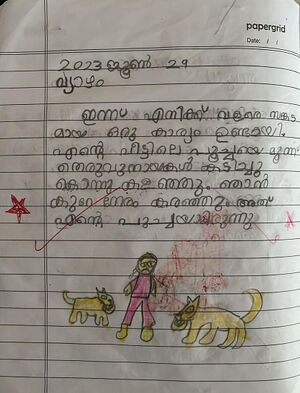 papergrid
Date: / /
2023 ജൂൺ 29
വ്യാഴം
ഇന്ന് എനിക്ക് വളരെ സങ്കട
മായ ഒരു കാര്യം ഉണ്ടായി.
എന്റെ വീട്ടിലെ പൂച്ചയെ മൂന്ന്
തെരുവുനായകൾ കടിച്ചു
കൊന്നു കളഞ്ഞു. ഞാൻ
കുറേ നേരം കരഞ്ഞു. അത്
എന്റെ പൂച്ചയായിരുന്നു